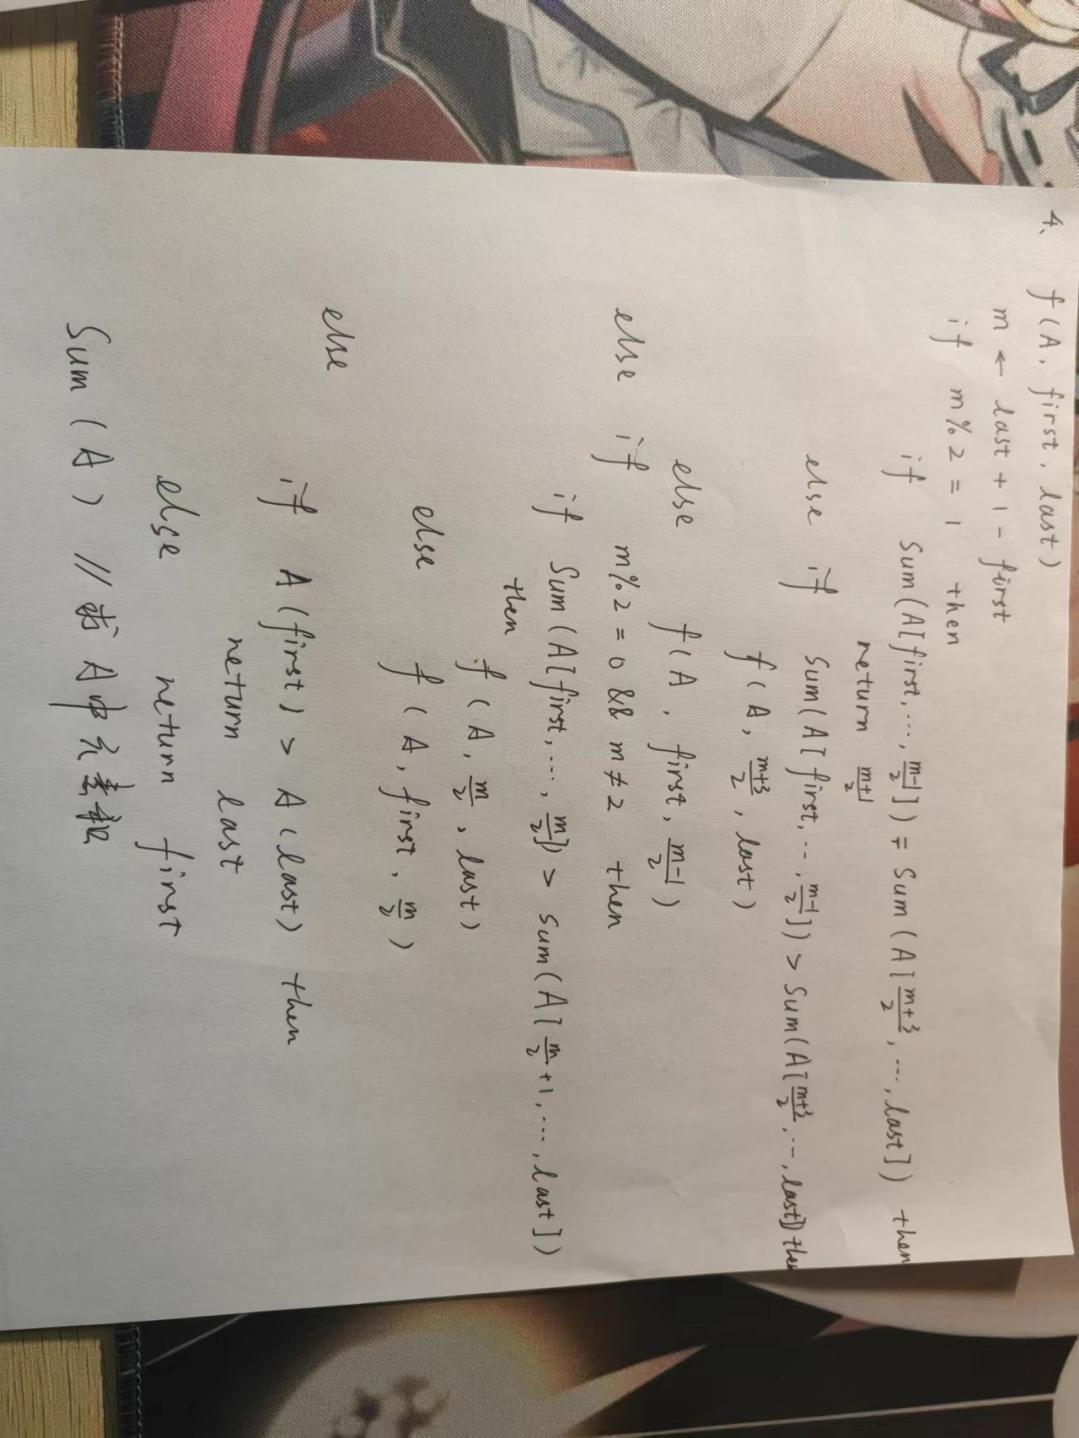 4、 f(A, first, last)
m ← last + 1 - first
if m%2 = 1 then
if Sum(A[first, ..., (m-1)/2]) = Sum(A[(m+3)/2, ..., last]) then
return (m+1)/2
else if Sum(A[first, .., (m-1)/2]) > Sum(A[(m+3)/2, .., last]) then
f(A, (m+3)/2, last)
else f(A, first, (m-1)/2)
else if m%2 = 0 && m≠2 then
if Sum(A[first, ..., m/2]) > Sum(A[m/2+1, ..., last])
then f(A, m/2, last)
else f(A, first, m/2)
else
if A(first) > A(last) then
return last
else return first
Sum(A) // 求A中元素和